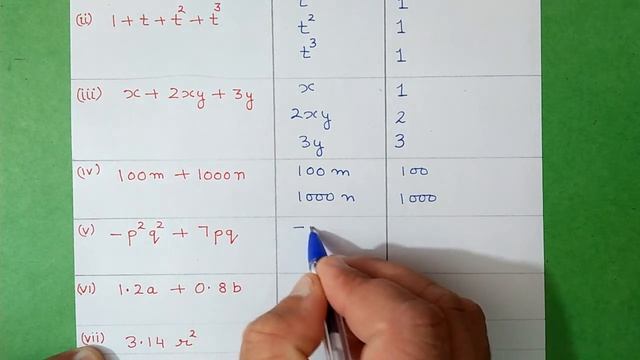 (ii) 1 + t + t² + t³ t 1
t² 1
t³ 1
(iii) x + 2xy + 3y x 1
2xy 2
3y 3
(iv) 100m + 1000n 100 m 100
1000 n 1000
(v) -p²q² + 7pq -
(vi) 1.2a + 0.8b
(vii) 3.14 r²